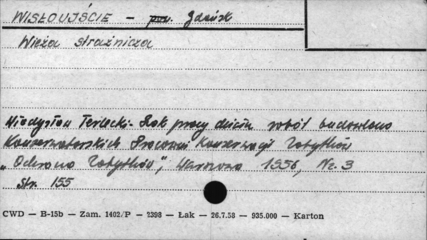 WISŁOUJŚCIE - pow. Gdańsk
Wieża strażnicza
Władysław Terlecki: Rok pracy działu robót budowlano
Konserwatorskich Pracowni Konserwacji Zabytków
„Ochrona Zabytków", Warszawa 1956, Nr. 3
Str. 155
CWD — B-15b — Zam. 1402/P — 2398 — Łak — 26.7.58 — 935.000 — Karton